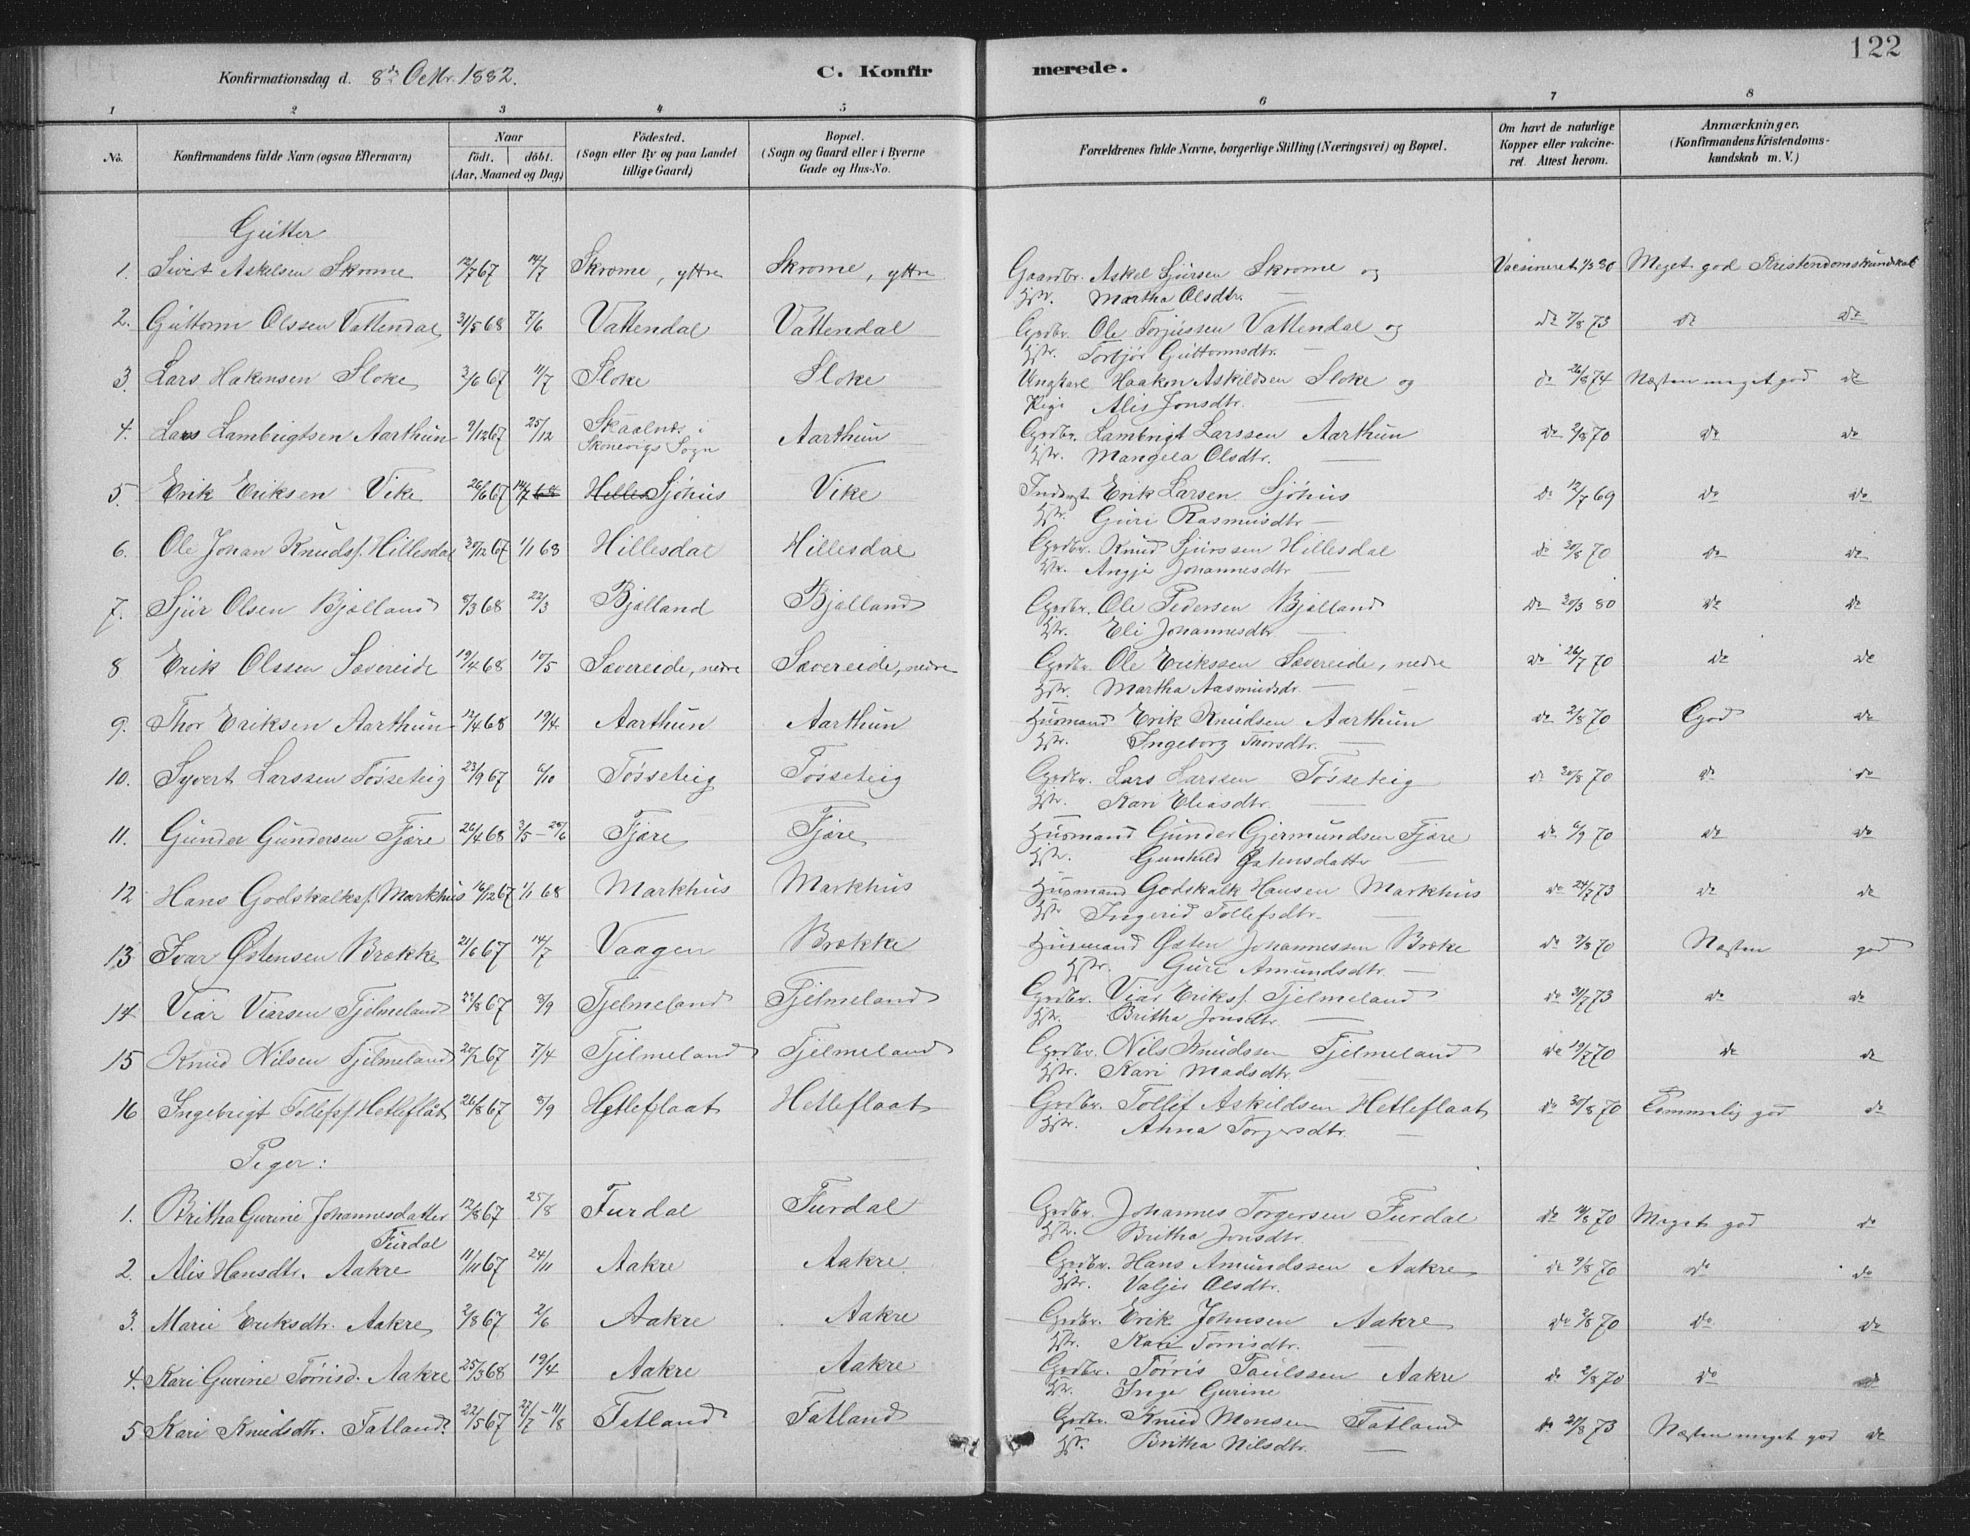 122
Konfirmationsdag d. 8de Octbr. 1882. C. Konfirmerede.
1 2 3 4 5 6 7 8
No. Konfirmandens fulde Navn (ogsaa Efternavn) Naar födt. döbt. (Aar, Maaned og Dag) Födested. (Sogn eller By og paa Landet tillige Gaard) Bopæl. (Sogn og Gaard eller i Byerne Gade og Hus-No. Forældrenes fulde Navne, borgerlige Stilling (Næringsvei) og Bopæl. Om havt de naturlige Kopper eller vakcineret. Attest herom. Anmærkninger. (Konfirmandens Kristendomskundskab m. V.)
Gutter
1. Sivert Askelsen Skrome 12/7 67 14/7 Skrome, yttre Skrome, yttre Gaardbr. Askel Sjursen Skrome og Vacsineret 1/3 80 Meget god Kristendomskundskab
Hstr. Martha Olsdtr. —
2. Guttorm Olssen Vattendal 31/5 68 7/6 Vattendal Vattendal Grdbr. Ole Torjussen Vattendal og do 7/8 73 do do
Hstr. Torbjør Guttormsdtr. —
3. Lars Hakensen Sloke 3/6 67 11/7 Sloke Sloke Ungkarl Haakon Askildsen Sloke og do 26/8 74 Næsten meget god do
Pige Alis Jonsdtr. —
4. Lars Lambrigtsen Aarthun 9/12 67 25/12 Skaalnes i Skonevigs Sogn Aarthun Grdbr. Lambrigt Larssen Aarthun do 2/8 70 do do
Hstr. Mangela Olsdtr. —
5. Erik Eriksen Vike 26/6 67 14/7 68 Hilles Sjöhus Vike Inderst Erik Larsen Sjöhus do 12/7 69 do do
Hstr. Guri Rasmusdtr —
6. Ole Johan Knudsf. Hillesdal 30/12 67 1/1 68 Hillesdal Hillesdal Grdbr. Knud Sjurssen Hillesdal do 30/8 70 do do
Hstr. Angje Johannesdtr —
7. Sjur Olsen Bjælland 8/3 68 22/3 Bjælland Bjælland Grdbr. Ole Pedersen Bjælland do 30/3 80 do do
Hstr. Eli Johannesdtr. —
8 Erik Olssen Sævereide 19/4 68 10/5 Sævereide, nedre Sævereide, nedre Grdbr. Ole Erikssen Sævereide, nedre do 26/7 70 do do
Hstr. Martha Aasmundsdr. —
9. Thor Eriksen Aarthun 12/4 68 19/4. Aarthun Aarthun Husmand Erik Knudsen Aarthun do 2/8 70 God do
Hstr. Ingeborg Thorsdtr. —
10. Syvert Larssen Tösseteig 23/9 67 6/10 Tösseteig Tösseteig Grdbr. Lars Larssen Tösseteig do 30/8 70 do do
Hstr. Kari Eliasdtr. —
11. Gunder Gundersen Fjære 26/4 68 3/5 - 28/6 Fjære Fjære Husmand Gunder Gjermundsen Fjære do 6/9 70 do do
Hstr. Gunhild Østensdatter —
12 Hans Godskalksf. Markhus 16/12 67 1/1 68 Markhus Markhus Husmand Godskalk Hansen Markhus do 24/7 73 do do
Hstr Ingerid Tollefsdtr. —
13 Ivar Østensen Brække 21/6 67 14/7 Vaagen Brække Husmand Østen Johannessen Bræke do 9/8 70 Næsten god
Hstr. Guri Amundsdtr. —
14 Viar Viarsen Tjelmeland 22/8 67 8/9 Tjelmeland Tjelmeland Grdbr. Viar Eriksf. Tjelmeland do 31/7 73 do do
Hstr. Britha Jonsdtr. —
15 Knud Nilsen Tjelmeland 20/2 67 7/4 Tjelmeland Tjelmeland Grdbr. Nils Knudssen Tjelmeland do 19/7 70 do do
Hstr. Kari Madsdtr. —
16 Ingebrigt Tollefsf. Hetleflåt 26/8 67 8/9 Hetleflaat Hetleflaat Grdbr. Tollef Askildsen Hetleflaat do 30/8 70 Temmelig god do
Hstr. Anna Torgersdtr. —
Piger:
1. Britha Gurine Johannesdatter Furdal 12/8 67 25/8 Furdal Furdal Grdbr. Johannes Torgersen Furdal do 11/8 70 Meget god do
Hstr. Britha Jonsdtr. —
2. Alis Hansdtr. Aakre 11/11 67 24/11 Aakre Aakre Grdbr. Hans Amundssen Aakre do 9/8 70 do do
Hstr. Valjer Olsdtr. —
3. Marie Eriksdtr. Aakre 2/8 67 2/6 Aakre Aakre Grdbr. Erik Johnsen Aakre do 2/8 70 do do
Hstr. Kari Torrisdtr. —
4. Kari Gurine Tørrisd. Aakre 25/3 68 19/4 Aakre Aakre Grdbr. Tørris Paulssen Aakre do 2/8 70 do do
Hstr. Inge Gurine
5 Kari Knudsdtr. Fatland. 22/5 67 27/7 - 11/8 Fatland Fatland Grdbr. Knud Monsen Fatland do 20/8 73 Næsten meget god do
Hstr. Britha Nilsdtr. —